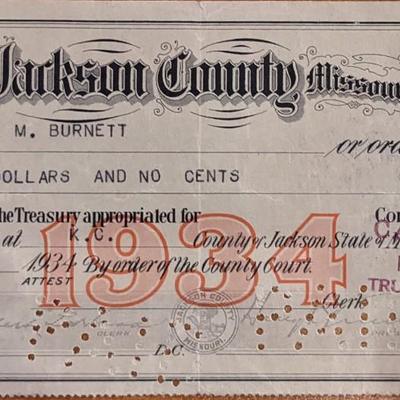 Jackson County Missou
M. BURNETT
or/ord
DOLLARS AND NO CENTS
the Treasury appropriated for Con
at K.C. County of Jackson State of M
1934
1934 By order of the County Court.
TRU
ATTEST
Clerk
JACKSON COUNTY
MISSOURI
CLERK
D.C.